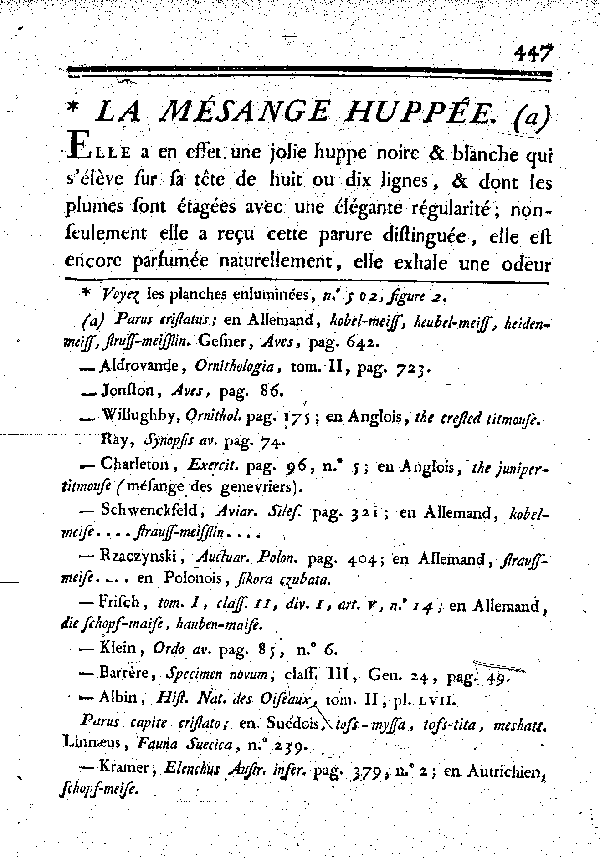 447
* LA MÉSANGE HUPPÉE. (a)
ELLE a en effet une jolie huppe noire & blanche qui
s'élève ſur ſa tête de huit ou dix lignes, & dont les
plumes ſont étagées avec une élégante régularité; non-
ſeulement elle a reçu cette parure diſtinguée, elle eſt
encore parfumée naturellement, elle exhale une odeur
* Voyez les planches enluminées, n.° 502, figure 2.
(a) Parus criſtatus; en Allemand, kobel-meiſſ, heubel-meiſſ, heiden-
meiſſ, ſtruſſ-meiſſlin. Geſner, Aves, pag. 642.
— Aldrovande, Ornithologia, tom. II, pag. 723.
— Jonſton, Aves, pag. 86.
— Willughby, Ornithol. pag. 175; en Anglois, the creſted titmouſe.
Ray, Synopſis av. pag. 74.
— Charleton, Exercit. pag. 96, n.° 5; en Anglois, the juniper-
titmouſe (méſange des genevriers).
— Schwenckfeld, Aviar. Sileſ. pag. 321; en Allemand, kobel-
meiſe.... ſtrauſſ-meiſſlin....
— Rzaczynski, Auctuar. Polon. pag. 404; en Allemand, ſtrauſſ-
meiſe.... en Polonois, ſikora czubata.
— Friſch, tom. I, claſſ. II, div. I, art. V, n.° 14; en Allemand,
die ſchopf-maiſe, hauben-maiſe.
— Klein, Ordo av. pag. 85, n.° 6.
— Barrère, Specimen novum; claſſ. III, Gen. 24, pag. 49.
— Albin, Hiſt. Nat. des Oiſeaux, tom. II, pl. LVII.
Parus capite criſtato; en Suédois, tofs-myſſa, tofs-tita, meshatt.
Linnæus, Fauna Suecica, n.° 239.
— Kramer, Elenchus Auſtr. infer. pag. 379, n.° 2; en Autrichien,
ſchopf-meiſe.